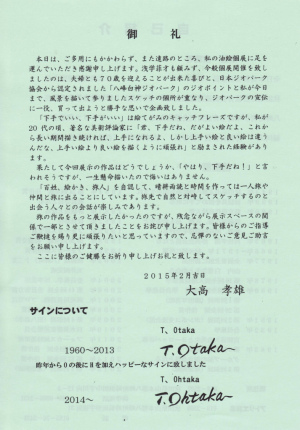 御 礼
本日は、ご多用にもかかわらず、また道路のところ、私の油絵個展に足を
運んでいただき感謝申し上げます。浅学非才も顧みず、今般個展開催を致し
ましたのは、夫婦とも70歳を迎えることが出来た喜びと、日本ジオパーク
協会から認定されました「八峰白神ジオパーク」のジオポイントと私が今日
まで、風景を描いて参りましたスケッチの個所が重なり、ジオパークの宣伝
に一役、買って出ようと勝手な思いで企画致しました。
「下手でいい、下手がいい」は絵てがみのキャッチフレーズですが、私が
20代の頃、著名な美術評論家に「君、下手だね、だがよい絵だよ、これか
ら長い期間描き続ければ、上手になるよ、しかし上手い絵と良い絵は違う
んだな、上手い絵より良い絵を描くように頑張れ」と励まされた経験があり
ます。
果たして今回展示の作品はどうでしょうか、「やはり、下手だね！」と言
われそうですが、一生懸命描いたので悔いはありません。
「百姓、絵かき、旅人」を自認して、晴耕雨読と時間を作っては一人旅や
仲間と旅に出てスケッチすることにしています。旅先で自然と対峙してスケッチするのと
出会う人々との会話が楽しみであります。
旅の作品をもっと展示したかったのですが、残念ながら展示スペースの関
係で一部とさせて頂きましたことをお詫び申し上げます。皆様からのご指導
ご鞭撻を賜り更に頑張りたいと思っていますので、忌憚のないご意見ご助言
をお願い申し上げます。
ここに皆様のご健勝をお祈り申し上げお礼と致します。
2015年2月吉日
大高 孝雄
サインについて
T、Otaka
1960～2013 T.Otaka
昨年からOの後にHを加えハッピーなサインに致しました
T、Ohtaka
2014～ T.Ohtaka